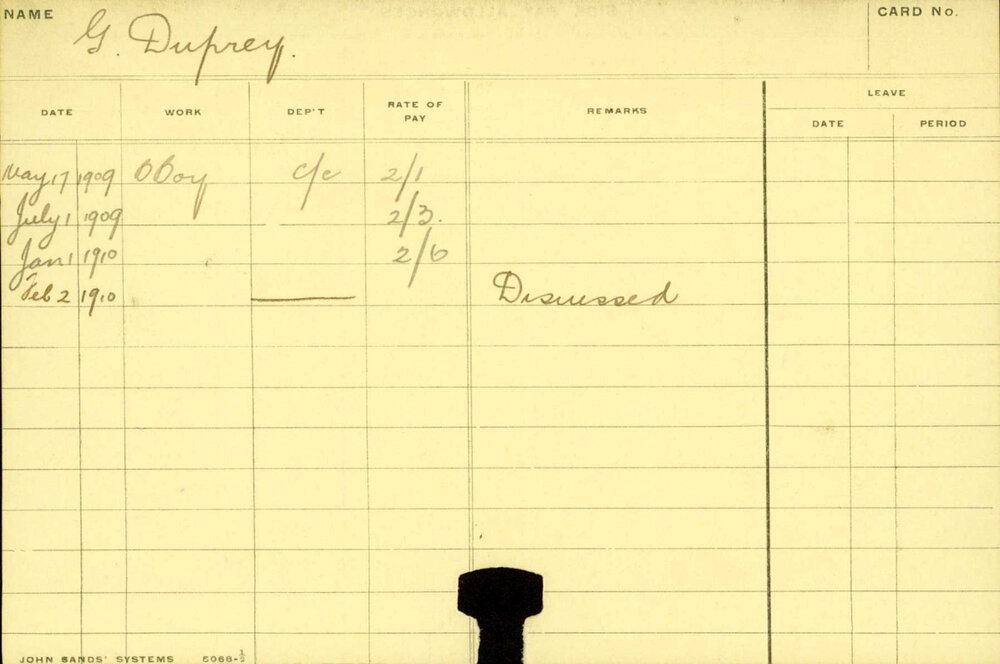 NAME G. Duprey. CARD No.
DATE WORK DEP'T RATE OF PAY REMARKS LEAVE
DATE PERIOD
May 17 1909 OBoy c/c 2/1
July 1 1909 2/3.
Jan 1 1910 2/6
Feb 2 1910 Dismissed
JOHN SANDS' SYSTEMS 5068-½